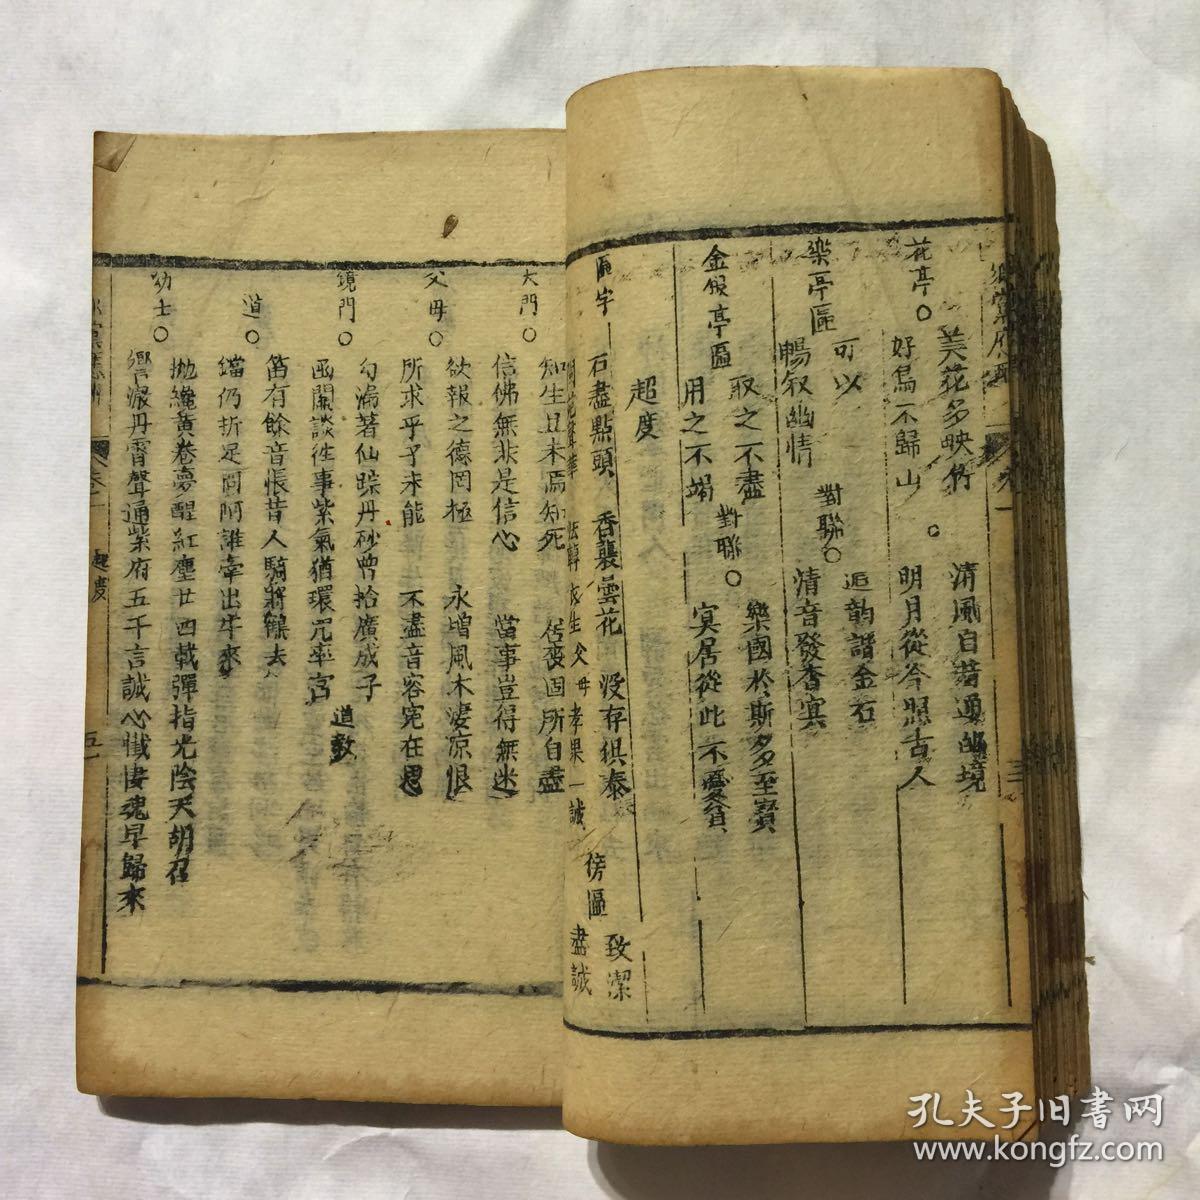 花亭○
美花多映竹
好鳥不歸山
清風自蓄通幽境
明月從今照古人
樂亭匾
可以
暢叙幽情
對聯○
逅韵諧金石
清音發杳㝠
金銀亭匾
取之不盡
用之不竭
對聯○
樂國於斯多至寳
㝠居從此不憂貧
超度
匾字
石盡點頭
香襲曇花
没存俱泰
傍匾
致潔
盡誠
大門○
知生且未焉知死
居喪固所自盡
信佛無非是信心
當事豈得無迷
父母○
欲報之德罔極
永增風木凄凉恨
所求乎子未能
不盡音容宛在思
鏡門○
勾漏著仙踪丹砂曾拾廣成子
函關談徃事紫氣猶環兜率宮
道教
道○
笛有餘音悵昔人騎將鶴去
鐺仍折足問阿誰牽出牛來
幼士○
拋殘黄卷夢醒紅塵廿四載彈指光陰天胡召
響澈丹霄聲通紫府五千言誠心懺悽魂早歸來
超度
孔夫子旧書网
www.kongfz.com